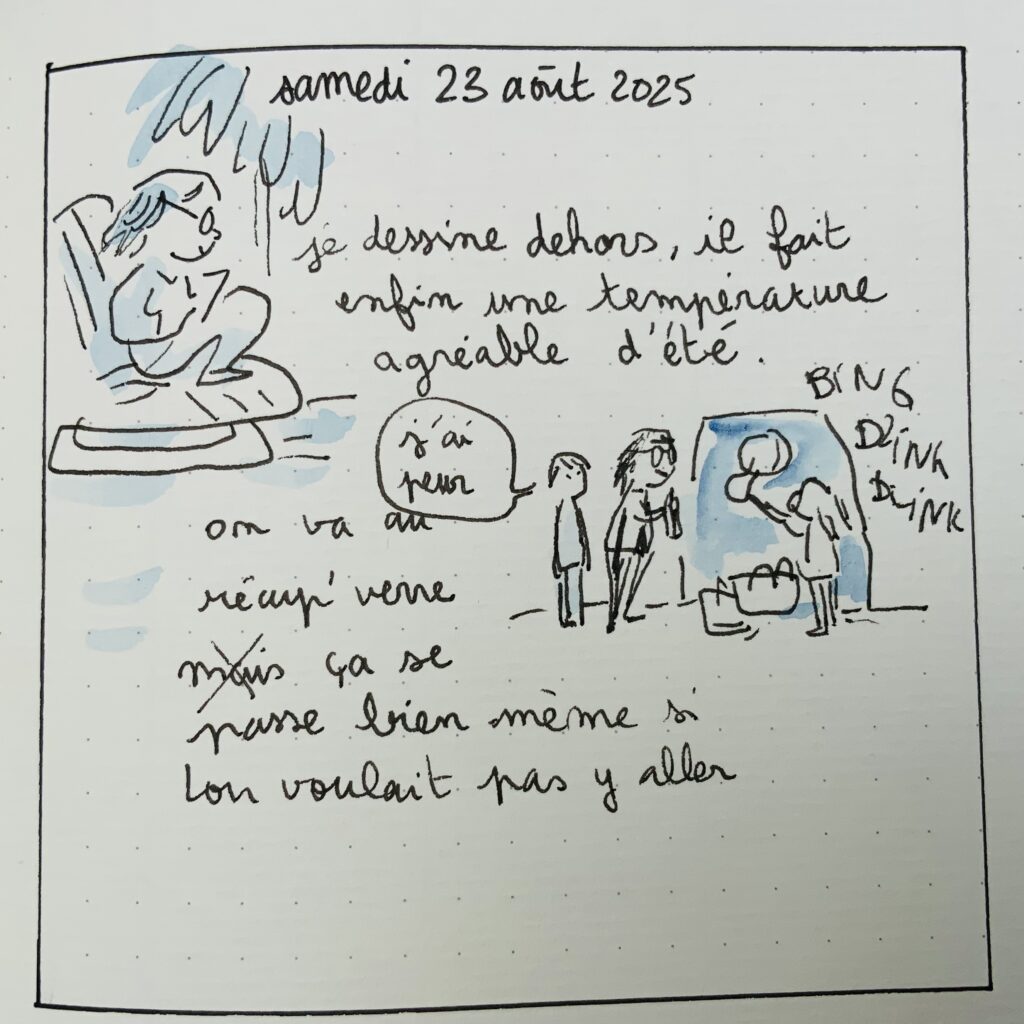 samedi 23 août 2025
je dessine dehors, il fait
enfin une température
agréable d'été.
BING
DLINK
DLINK
j'ai
peur
on va au
récup' verre
mais ça se
passe bien même si
Lou voulait pas y aller